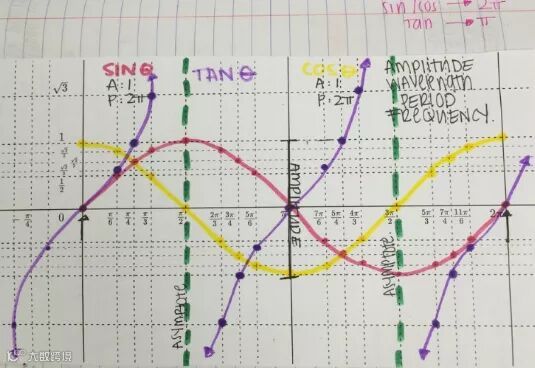 sin/cos → 2π
tan → π
SINθ
A: 1
P: 2π
TAN θ
COSθ
A: 1
P: 2π
AMPLITUDE
WAVELENGTH
PERIOD
FREQUENCY.
√3
1
1/2
0
π/6 π/4 π/3 π/2 2π/3 3π/4 5π/6 π 7π/6 5π/4 4π/3 3π/2 5π/3 7π/4 11π/6 2π
AMPLITUDE
ASYMPTOTE
ASYMPTOTE
大数跨境